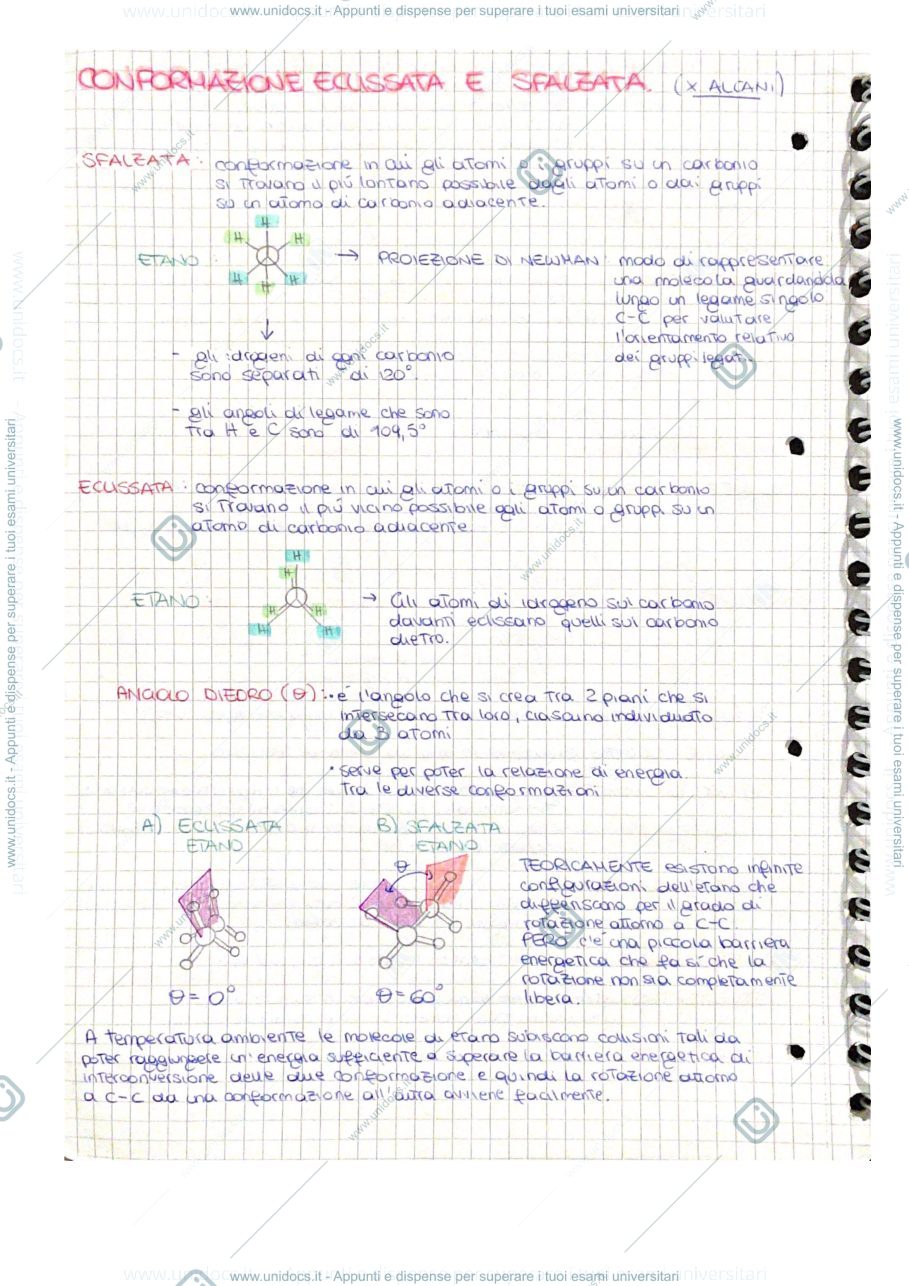 www.unidocs.it - Appunti e dispense per superare i tuoi esami universitari
CONFORMAZIONE ECLISSATA E SFALZATA. (x ALCANI)
SFALZATA: conformazione in cui gli atomi o i gruppi su un carbonio
si trovano il più lontano possibile dagli atomi o dai gruppi
su un atomo di carbonio adiacente.
H
H H
ETANO : → PROIEZIONE DI NEWMAN: modo di rappresentare
una molecola guardandola
H H
H
lungo un legame singolo
C-C per valutare
l'orientamento relativo
dei gruppi legati.
- gli idrogeni di ogni carbonio
sono separati di 120°.
- gli angoli di legame che sono
tra H e C sono di 109,5°
ECLISSATA : conformazione in cui gli atomi o i gruppi su un carbonio
si trovano il più vicino possibile agli atomi o gruppi su un
atomo di carbonio adiacente.
H
H
ETANO: → Gli atomi di idrogeno sul carbonio
H H
davanti eclissano quelli sul carbonio
H H
dietro.
ANGOLO DIEDRO (θ): • è l'angolo che si crea tra 2 piani che si
intersecano tra loro, ciascuno individuato
da 3 atomi
• serve per poter la relazione di energia
tra le diverse conformazioni
A) ECLISSATA
ETANO
B) SFALZATA
ETANO
θ
θ = 0°
θ = 60°
TEORICAMENTE esistono infinite
configurazioni dell'etano che
differiscono per il grado di
rotazione attorno a C-C
PERÒ c'è una piccola barriera
energetica che fa sì che la
rotazione non sia completamente
libera.
A temperatura ambiente le molecole di etano subiscono collisioni tali da
poter raggiungere un'energia sufficiente a superare la barriera energetica di
interconversione delle due conformazione e quindi la rotazione attorno
a C-C da una conformazione all'altra avviene facilmente.
www.unidocs.it - Appunti e dispense per superare i tuoi esami universitari
www.unidocs.it - Appunti e dispense per superare i tuoi esami universitari
www.unidocs.it - Appunti e dispense per superare i tuoi esami universitari